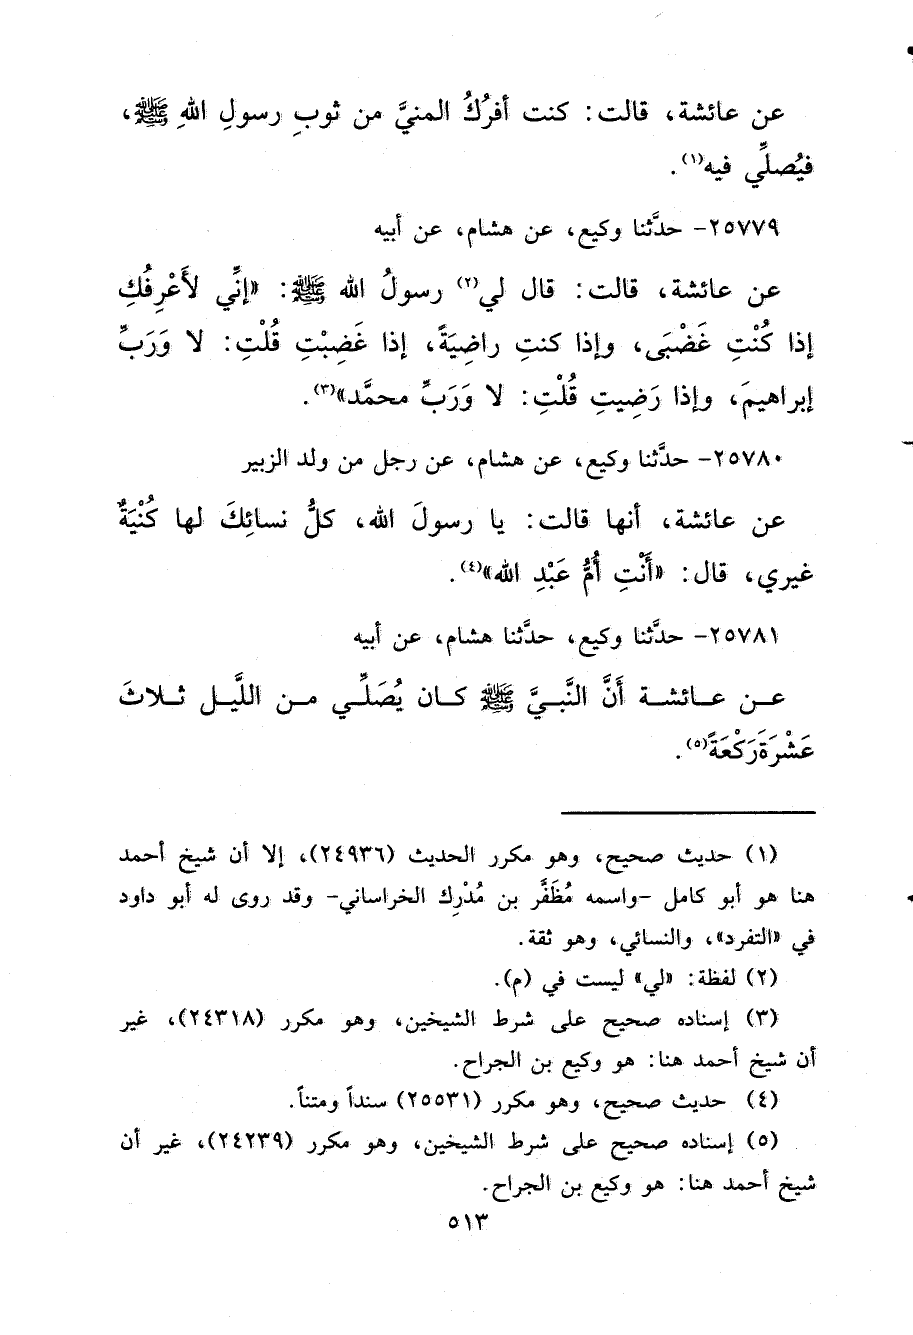 عن عائشة، قالت: كنت أفرُكُ المنيَّ من ثوبِ رسولِ اللهِ ﷺ،
فيُصلِّي فيه(١).
٢٥٧٧٩- حدَّثنا وكيع، عن هشام، عن أبيه
عن عائشة، قالت: قال لي(٢) رسولُ الله ﷺ: «إنِّي لأَعْرِفُكِ
إذا كُنْتِ غَضْبَى، وإذا كنتِ راضِيَةً، إذا غَضِبْتِ قُلْتِ: لا وَرَبِّ
إبراهيمَ، وإذا رَضِيتِ قُلْتِ: لا وَرَبِّ محمَّد»(٣).
٢٥٧٨٠- حدَّثنا وكيع، عن هشام، عن رجل من ولد الزبير
عن عائشة، أنها قالت: يا رسولَ الله، كلُّ نسائِكَ لها كُنْيَةٌ
غيري، قال: «أَنْتِ أُمُّ عَبْدِ الله»(٤).
٢٥٧٨١- حدَّثنا وكيع، حدَّثنا هشام، عن أبيه
عن عائشة أَنَّ النَّبيَّ ﷺ كان يُصَلِّي من اللَّيل ثلاثَ
عَشْرَةَ رَكْعَةً(٥).
(١) حديث صحيح، وهو مكرر الحديث (٢٤٩٣٦)، إلا أن شيخ أحمد
هنا هو أبو كامل -واسمه مُظَفَّر بن مُدْرِك الخراساني- وقد روى له أبو داود
في «التفرد»، والنسائي، وهو ثقة.
(٢) لفظة: «لي» ليست في (م).
(٣) إسناده صحيح على شرط الشيخين، وهو مكرر (٢٤٣١٨)، غير
أن شيخ أحمد هنا: هو وكيع بن الجراح.
(٤) حديث صحيح، وهو مكرر (٢٥٥٣١) سنداً ومتناً.
(٥) إسناده صحيح على شرط الشيخين، وهو مكرر (٢٤٢٣٩)، غير أن
شيخ أحمد هنا: هو وكيع بن الجراح.
٥١٣